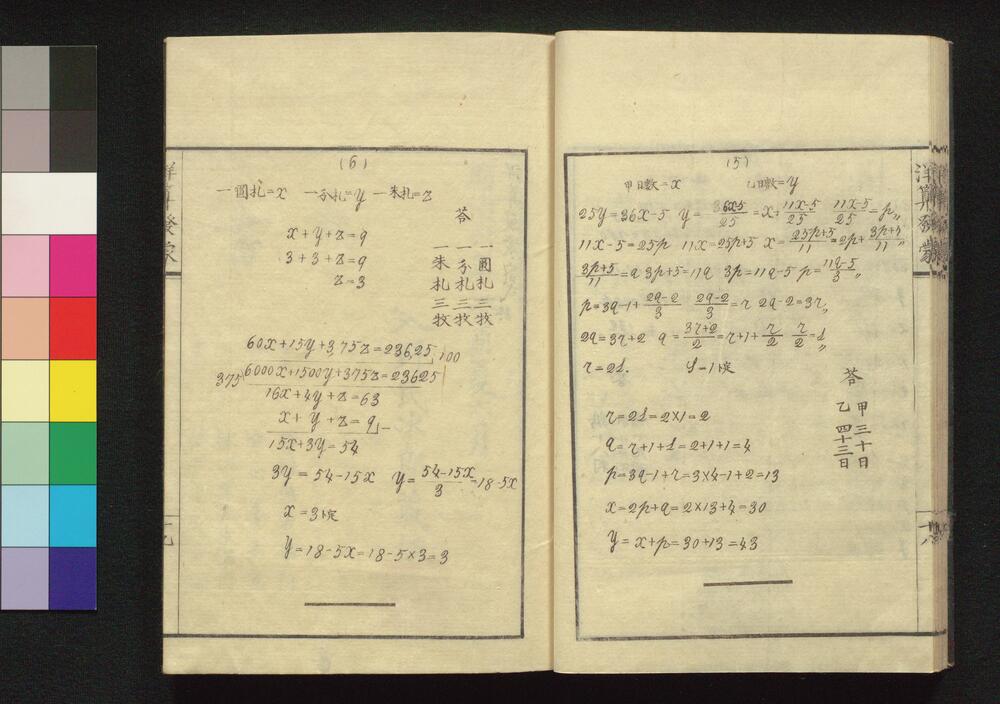 (5)
甲日數=x 乙日數=y
25y=36x-5 y=36x-5/25=x+11x-5/25 11x-5/25=p,,
11x-5=25p 11x=25p+5 x=25p+5/11=2p+3p+5/11,,
3p+5/11=q 3p+5=11q 3p=11q-5 p=11q-5/3,,
p=3q-1+2q-2/3 2q-2/3=r 2q-2=3r,,
2q=3r+2 q=3r+2/2=r+1+r/2 r/2=s,,
r=2s. s=1ト定
答
甲三十日
乙四十三日
r=2s=2×1=2
q=r+1+s=2+1+1=4
p=3q-1+r=3×4-1+2=13
x=2p+q=2×13+4=30
y=x+p=30+13=43
洋算發蒙
十八
(6)
一圓札=x 一分札=y 一朱札=z
答
一圓札三牧
一分札三牧
一朱札三牧
x+y+z=9
3+3+z=9
z=3
60x+15y+3,75z=236,25 100
375 6000x+1500y+375z=23625
16x+4y+z=63
x+y+z=9 -
15x+3y=54
3y=54-15x y=54-15x/3=18-5x
x=3ト定
y=18-5x=18-5×3=3
洋算發蒙